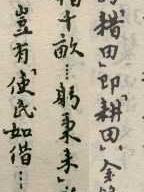 「耤田」即「耕田」、金
耤千畝…躬秉耒
豈有「使民如借…